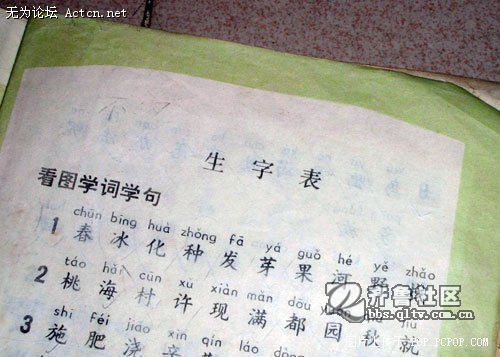 无为论坛 Actcn.net
生字表
看图学词学句
chūn bīng huà zhǒng fā yá guǒ hé yě zhǎo
1 春 冰 化 种 发 芽 果 河 野 找
táo hǎi cūn xǔ xiàn mǎn dōu yuán
2 桃 海 村 许 现 满 都 园 秋 就
shī féi jiāo xīn qín láo dòng
3 施 肥 浇 辛
齐鲁社区
bbs.qltv.com.cn
PCPOP.COM